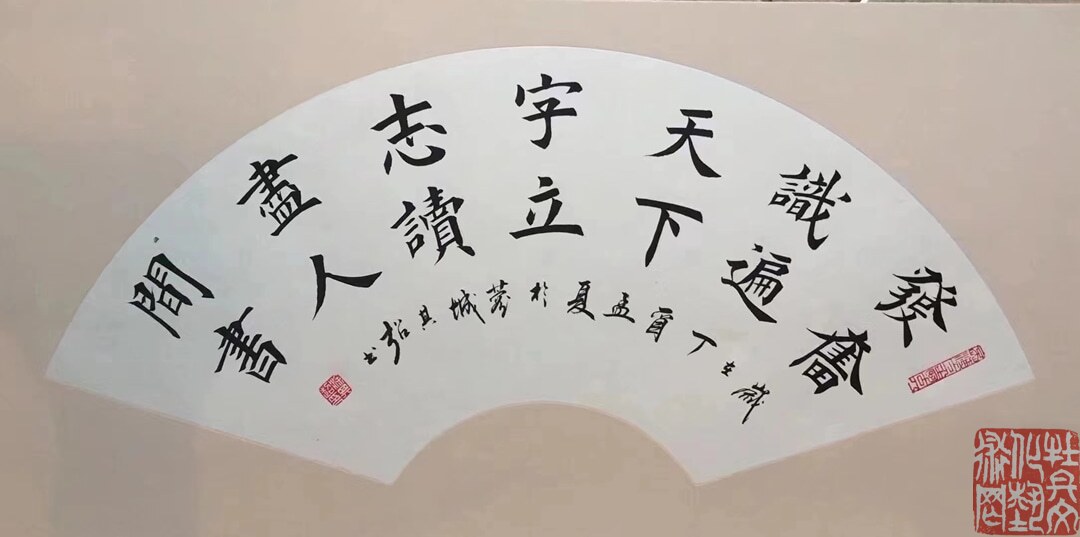 發奮
識遍
天下
字立
志讀
盡人
間書
歲在丁酉孟夏於蓉城其书